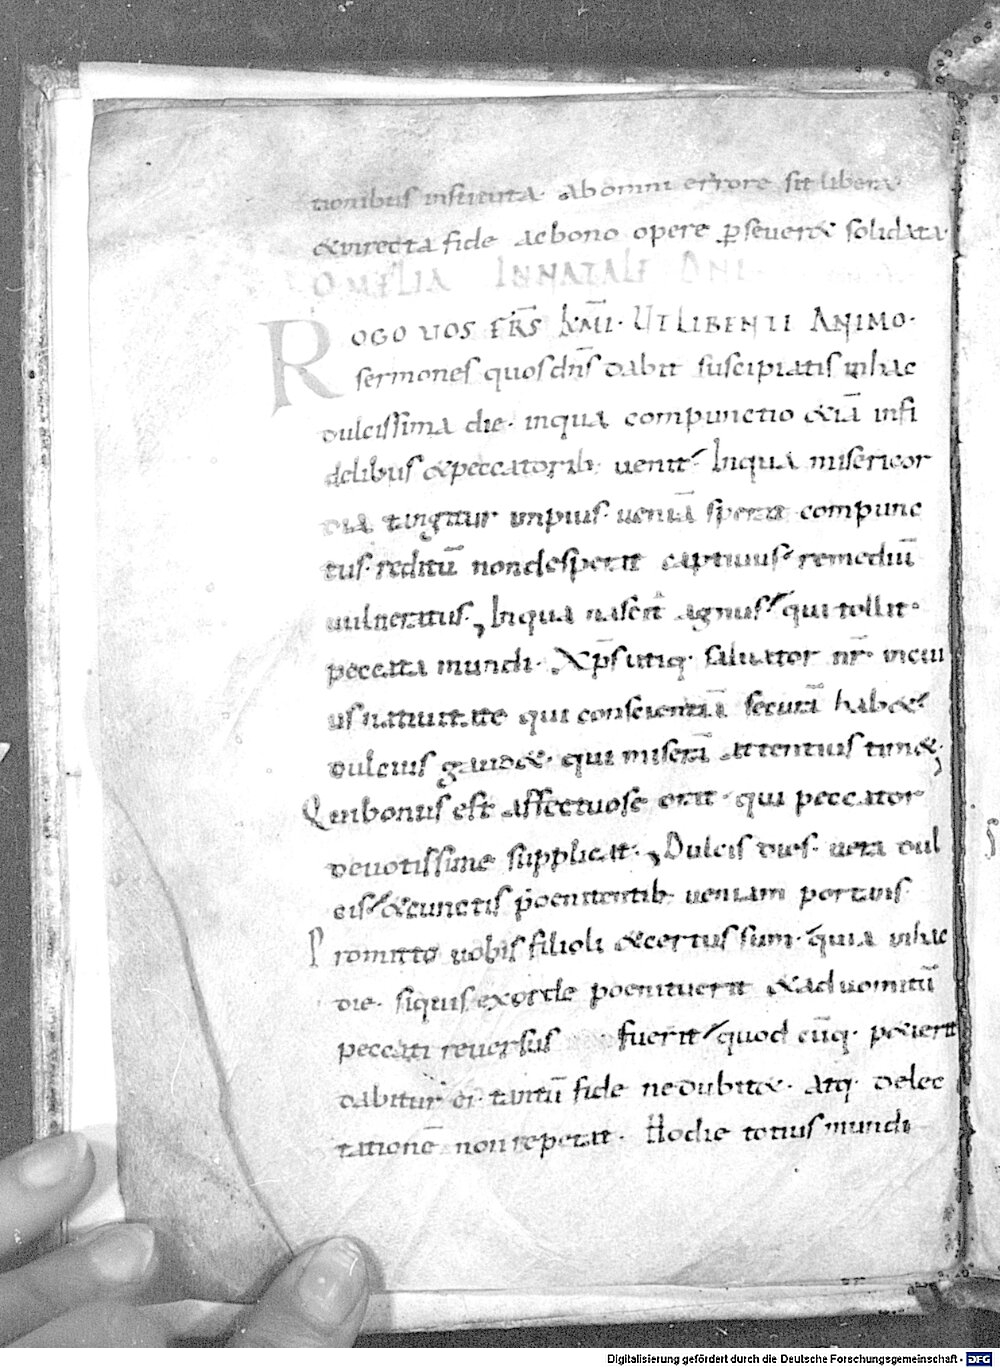 tionibus instituta. Ab omni errore sit libera.
& in recta fide ac bono opere ꝑseuer& solidata.
OMELIA IN NATALE DNI
ROGO VOS FR̄S KM̄I. UT LIBENTI ANIMO.
sermones quos dn̄s dabit suscipiatis in hac
dulcissima die. in qua compunctio &iā infi
delibus & peccatorib; uenit. In qua misericor
dia tangitur impius. ueniā sperat compunc
tus. reditū non desperat captiuus. remediū
uulneratus; In qua nascit̄ agnus. qui tollit
peccata mundi. Xp̄s utiq; saluator nr̄. in cui
us natiuitate qui conscientiā securā hab&
dulcius gaud&. qui miserā attentius tim&;
Qui bonus est affectuose orat. qui peccator
deuotissime supplicat; Dulcis dies. uera dul
cis. & cunctis poenitentib; ueniam portans.
Promitto uobis filioli & certus sum. quia in hac
die. siquis ex corde poenituerit & ad uomitū
peccati reuersus fuerit quod cūq; petierit
dabitur ei. tantū fide ne dubit&. atq; delec
tationē non repetat. Hodie totius mundi
Digitalisierung gefördert durch die Deutsche Forschungsgemeinschaft - DFG